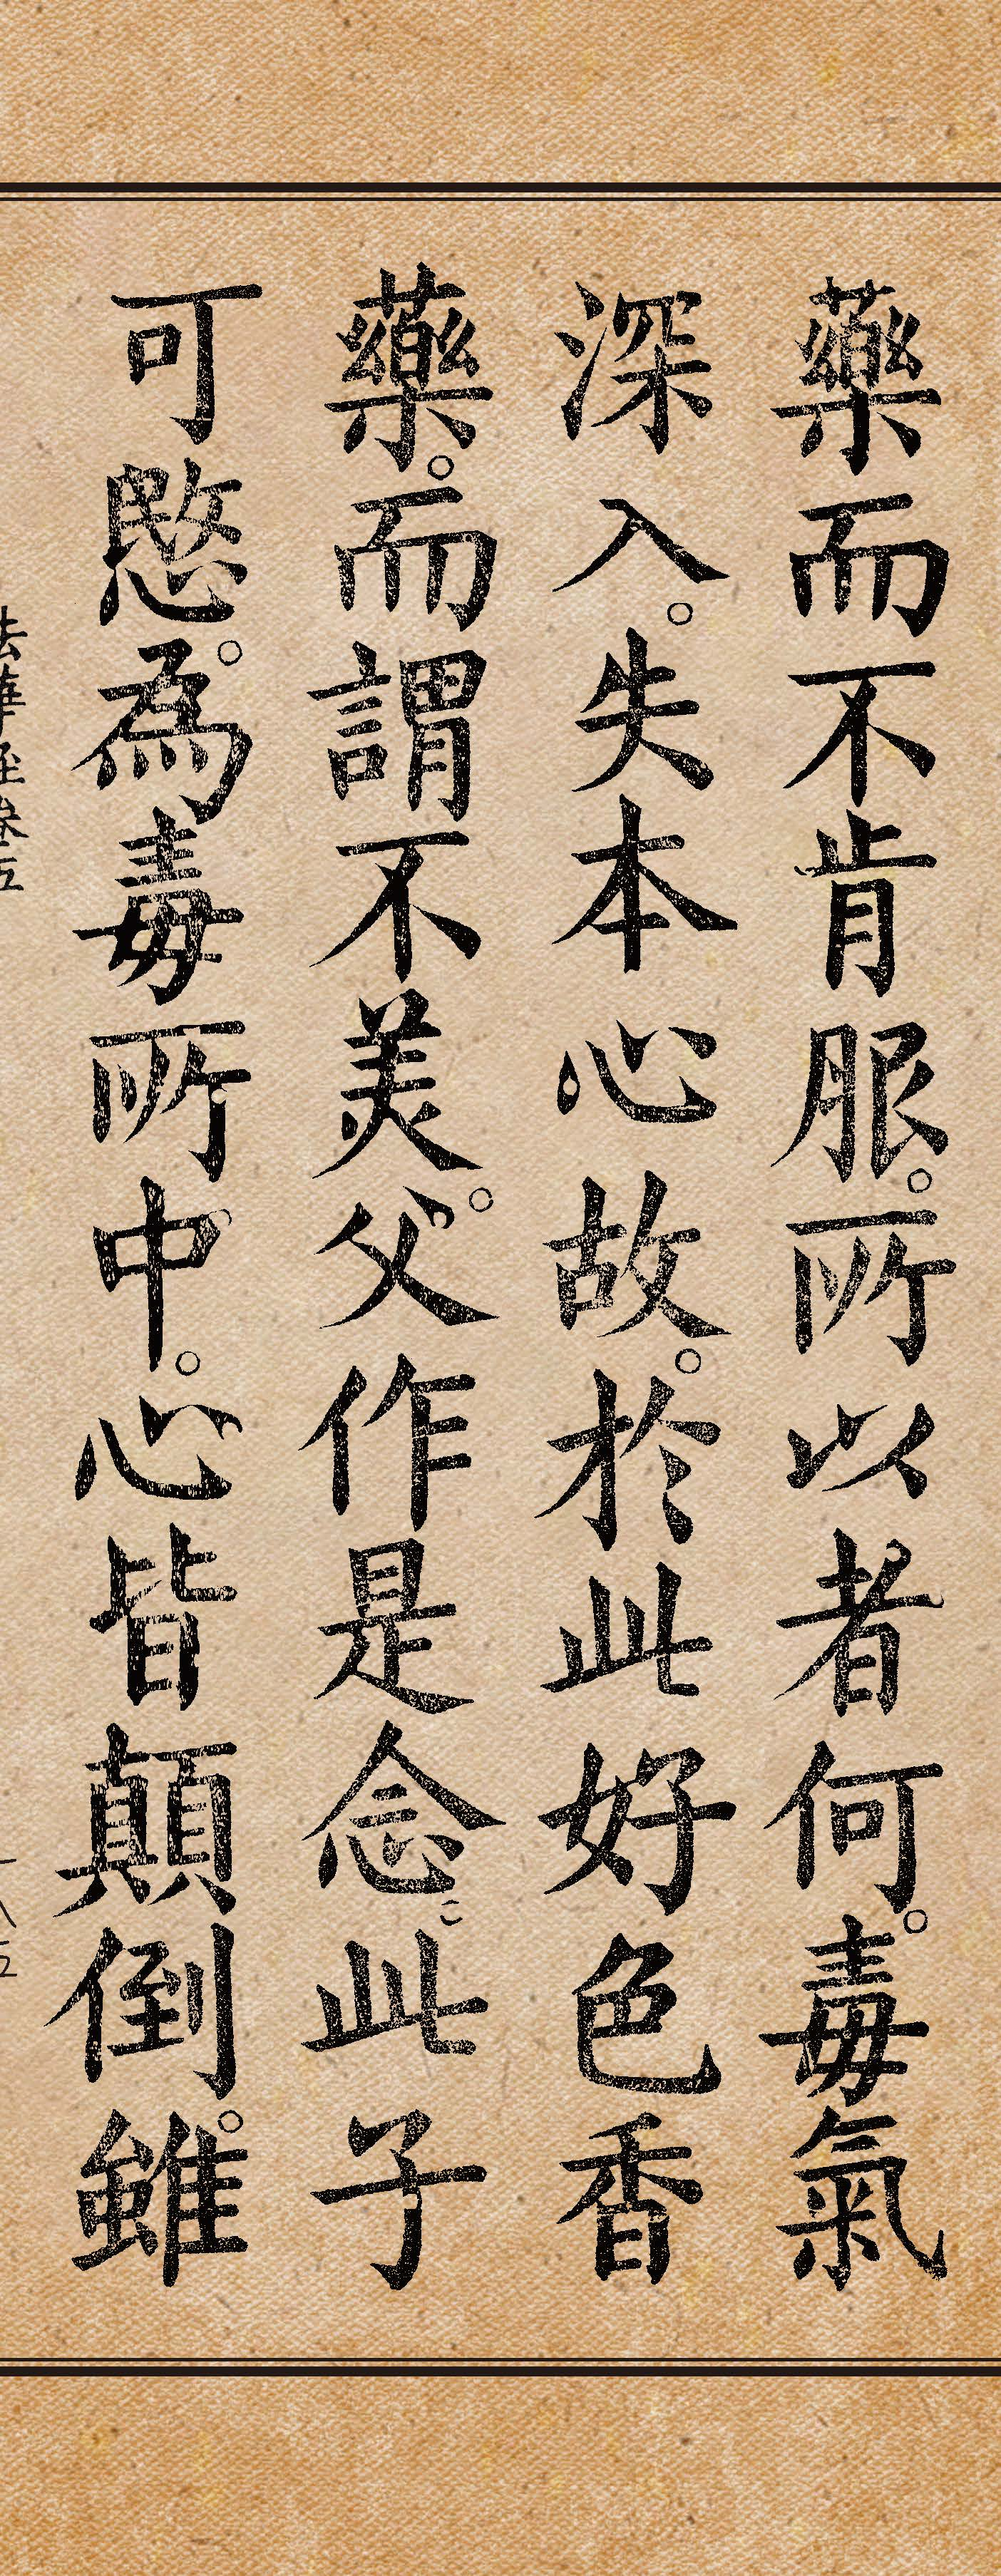 藥而不肯服。所以者何。毒氣
深入。失本心故。於此好色香
藥。而謂不美。父作是念。此子
可愍。為毒所中。心皆顛倒。雖
法華經卷五
一八五